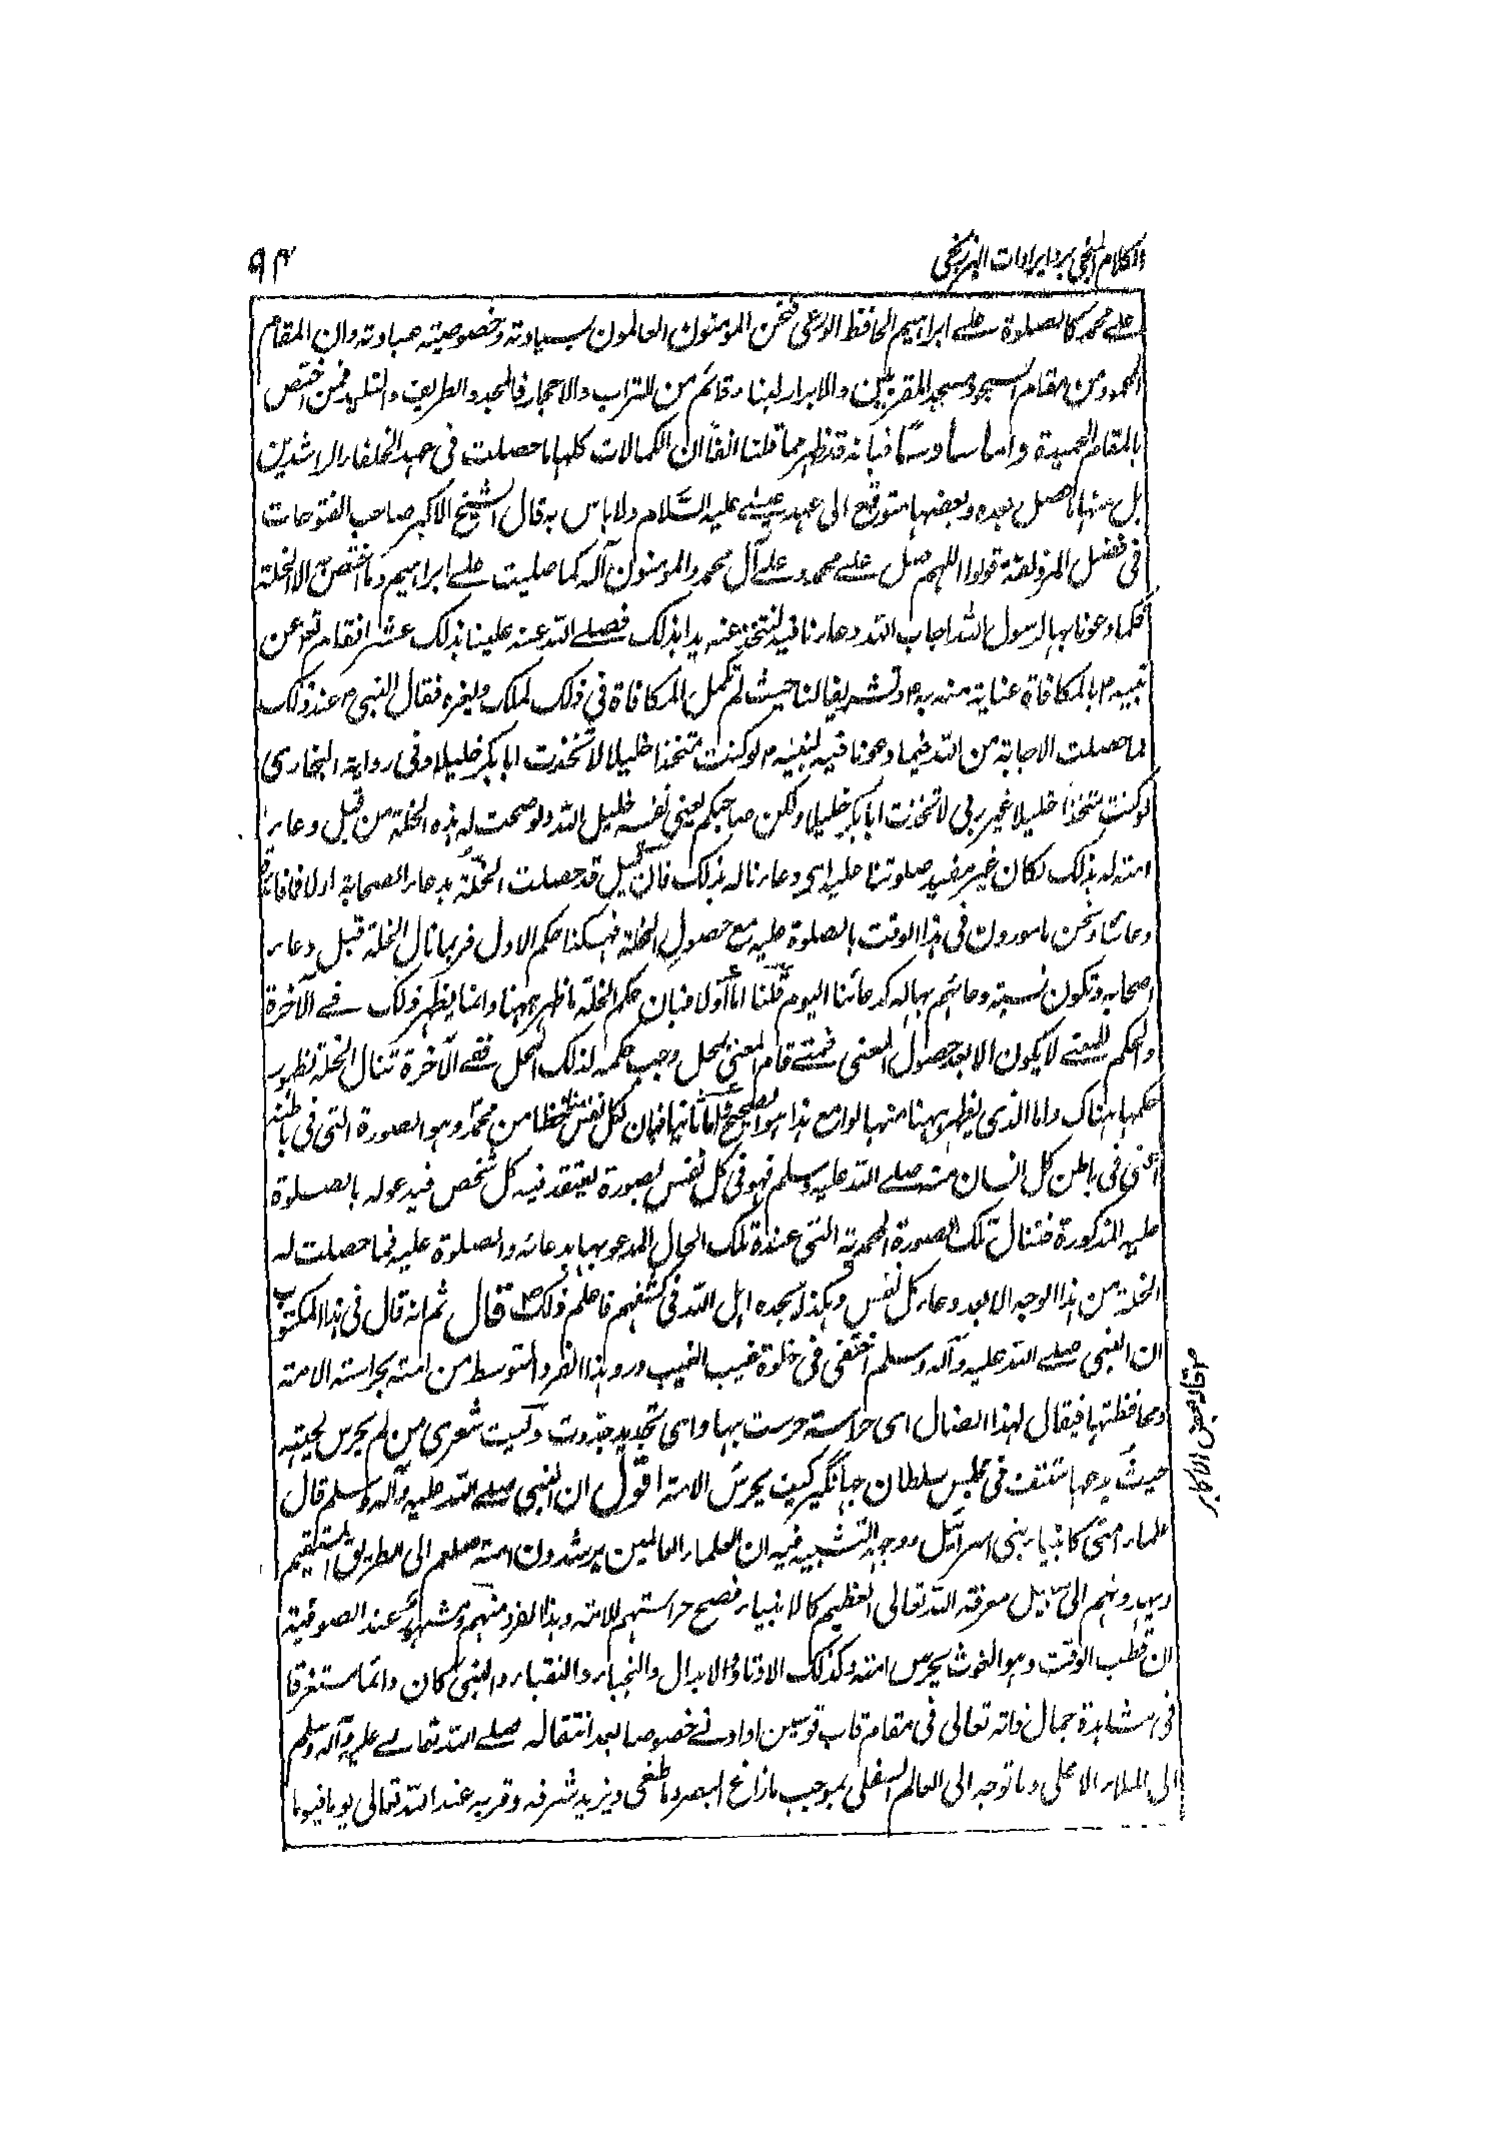 الكلام المنجي برد ايرادات البرزنجي
٩٤
على محمد كالصلوة على ابراهيم الحافظ الوعى فنحن المومنون العالمون بسيادته وخصوصيته عبادته وان المقام
المحمود من مقام السجود مسجد المقربين والابرار لبناء قائم من التراب والاحجار فالمجد والطريف والتليد فمن اختص
بالمقام الحميدة واما سادسا فبانه قد ظهر مما قلنا انفا ان الكمالات كلها ما حصلت فى عهد الخلفاء الراشدين
بل منها ما حصل بعده وبعضها متوقع الى عهد عيسى عليه السلام ولا باس به قال الشيخ الاكبر صاحب الفتوحات
فى فضل المزدلفة قولوا اللهم صل على محمد وعلى آل محمد والمومنون آله كما صليت على ابراهيم وما اختص به الا الخلة
فلما دعونا بها لرسول الله اجاب الله دعاءنا فيه لنتخذ عنه يدا بذلك فصلى الله عنه علينا بذلك عشرا فقام تعم عن
نبيه م بالمكافاة عناية منه به م وتشريفا لنا حيث لم تكمل المكافاة فى ذلك لملك ولا غيره فقال النبى م عند ذلك
لما حصلت الاجابة من الله فيما دعونا فيه لنبيه م لو كنت متخذا خليلا لاتخذت ابا بكر خليلا وفى رواية البخارى
لو كنت متخذا خليلا غير ربى لاتخذت ابا بكر خليلا ولكن صاحبكم يعنى نفسه خليل الله ولو صحت له هذه الخلة من قبل دعاء
امته له بذلك لكان غير مفيد صلوتنا عليه اى دعاءنا له بذلك فان قيل قد حصلت الخلة بدعاء الصحابة اولا فما فائدة
دعائنا ونحن مامورون فى هذا الوقت بالصلوة عليه مع حصول الخلة فهكذا حكم الاول فربما نال الخلة قبل دعاء
اصحابه وتكون نسبة دعائهم بها له كدعائنا اليوم قلنا اما اولا فبان حكم الخلة ما ظهر ههنا وانما يظهر ذلك فى الآخرة
والحكم للمعنى لا يكون الا بعد حصول المعنى فمتى قام المعنى بمحل وجب حكمه لذلك المحل ففى الآخرة تنال الخلة لظهور
حكمها هناك واما الذى يظهر ههنا منها لوامع هذا هو الصحيح واما ثانيا فبان لكل نفس حظا من محمد وهو الصورة التى فى باطنه
اعنى فى باطن كل انسان منه صلى الله عليه وسلم فهو فى كل نفس بصورة يعتقد فيه كل شخص فيدعو له بالصلوة
عليه المذكورة فتنال تلك الصورة المحمدية التى عنده تلك الحال المدعو بها بدعائه والصلوة عليه فما حصلت له
الخلة من هذا الوجه الا بعد دعاء كل نفس وهكذا يجده اهل الله فى كشفهم فاعلم ذلك قال ثم انه قال فى هذا المكتوب
ان النبى صلى الله عليه وآله وسلم اختفى فى خلوة غيب الغيب وروى هذا الفرد المتوسط من امته بحراسته الامة
ومحافظتها فيقال لهذا الضال اى حراسة حرست بها واى تجديد جددت وليت شعرى من لم يحرس لحيته
حيث نتفت فى مجلس سلطان جهانگير كيف يحرس الامة اقول ان النبى صلى الله عليه وآله وسلم قال
علماء امتى كانبياء بنى اسرائيل ووجه التشبيه فيه ان العلماء العالمين يرشدون امته صلعم الى الطريق المستقيم
ويهدونهم الى سبيل معرفة الله تعالى العظيم كالانبياء فصح حراستهم للامة وهذا الفرد منهم ومشهور عند الصوفية
ان قطب الوقت وهو الغوث يحرس امته وكذلك الاوتاد والابدال والنجباء والنقباء والنبى كان دائما مستغرقا
فى مشاهدة جمال ذاته تعالى فى مقام قاب قوسين او ادنى خصوصا بعد انتقاله صلى الله تعالى عليه وآله وسلم
الى الملاء الاعلى وما توجه الى العالم السفلى بموجب ما زاغ البصر وما طغى ويزيد شرفه وقربه عند الله تعالى يوما فيوما